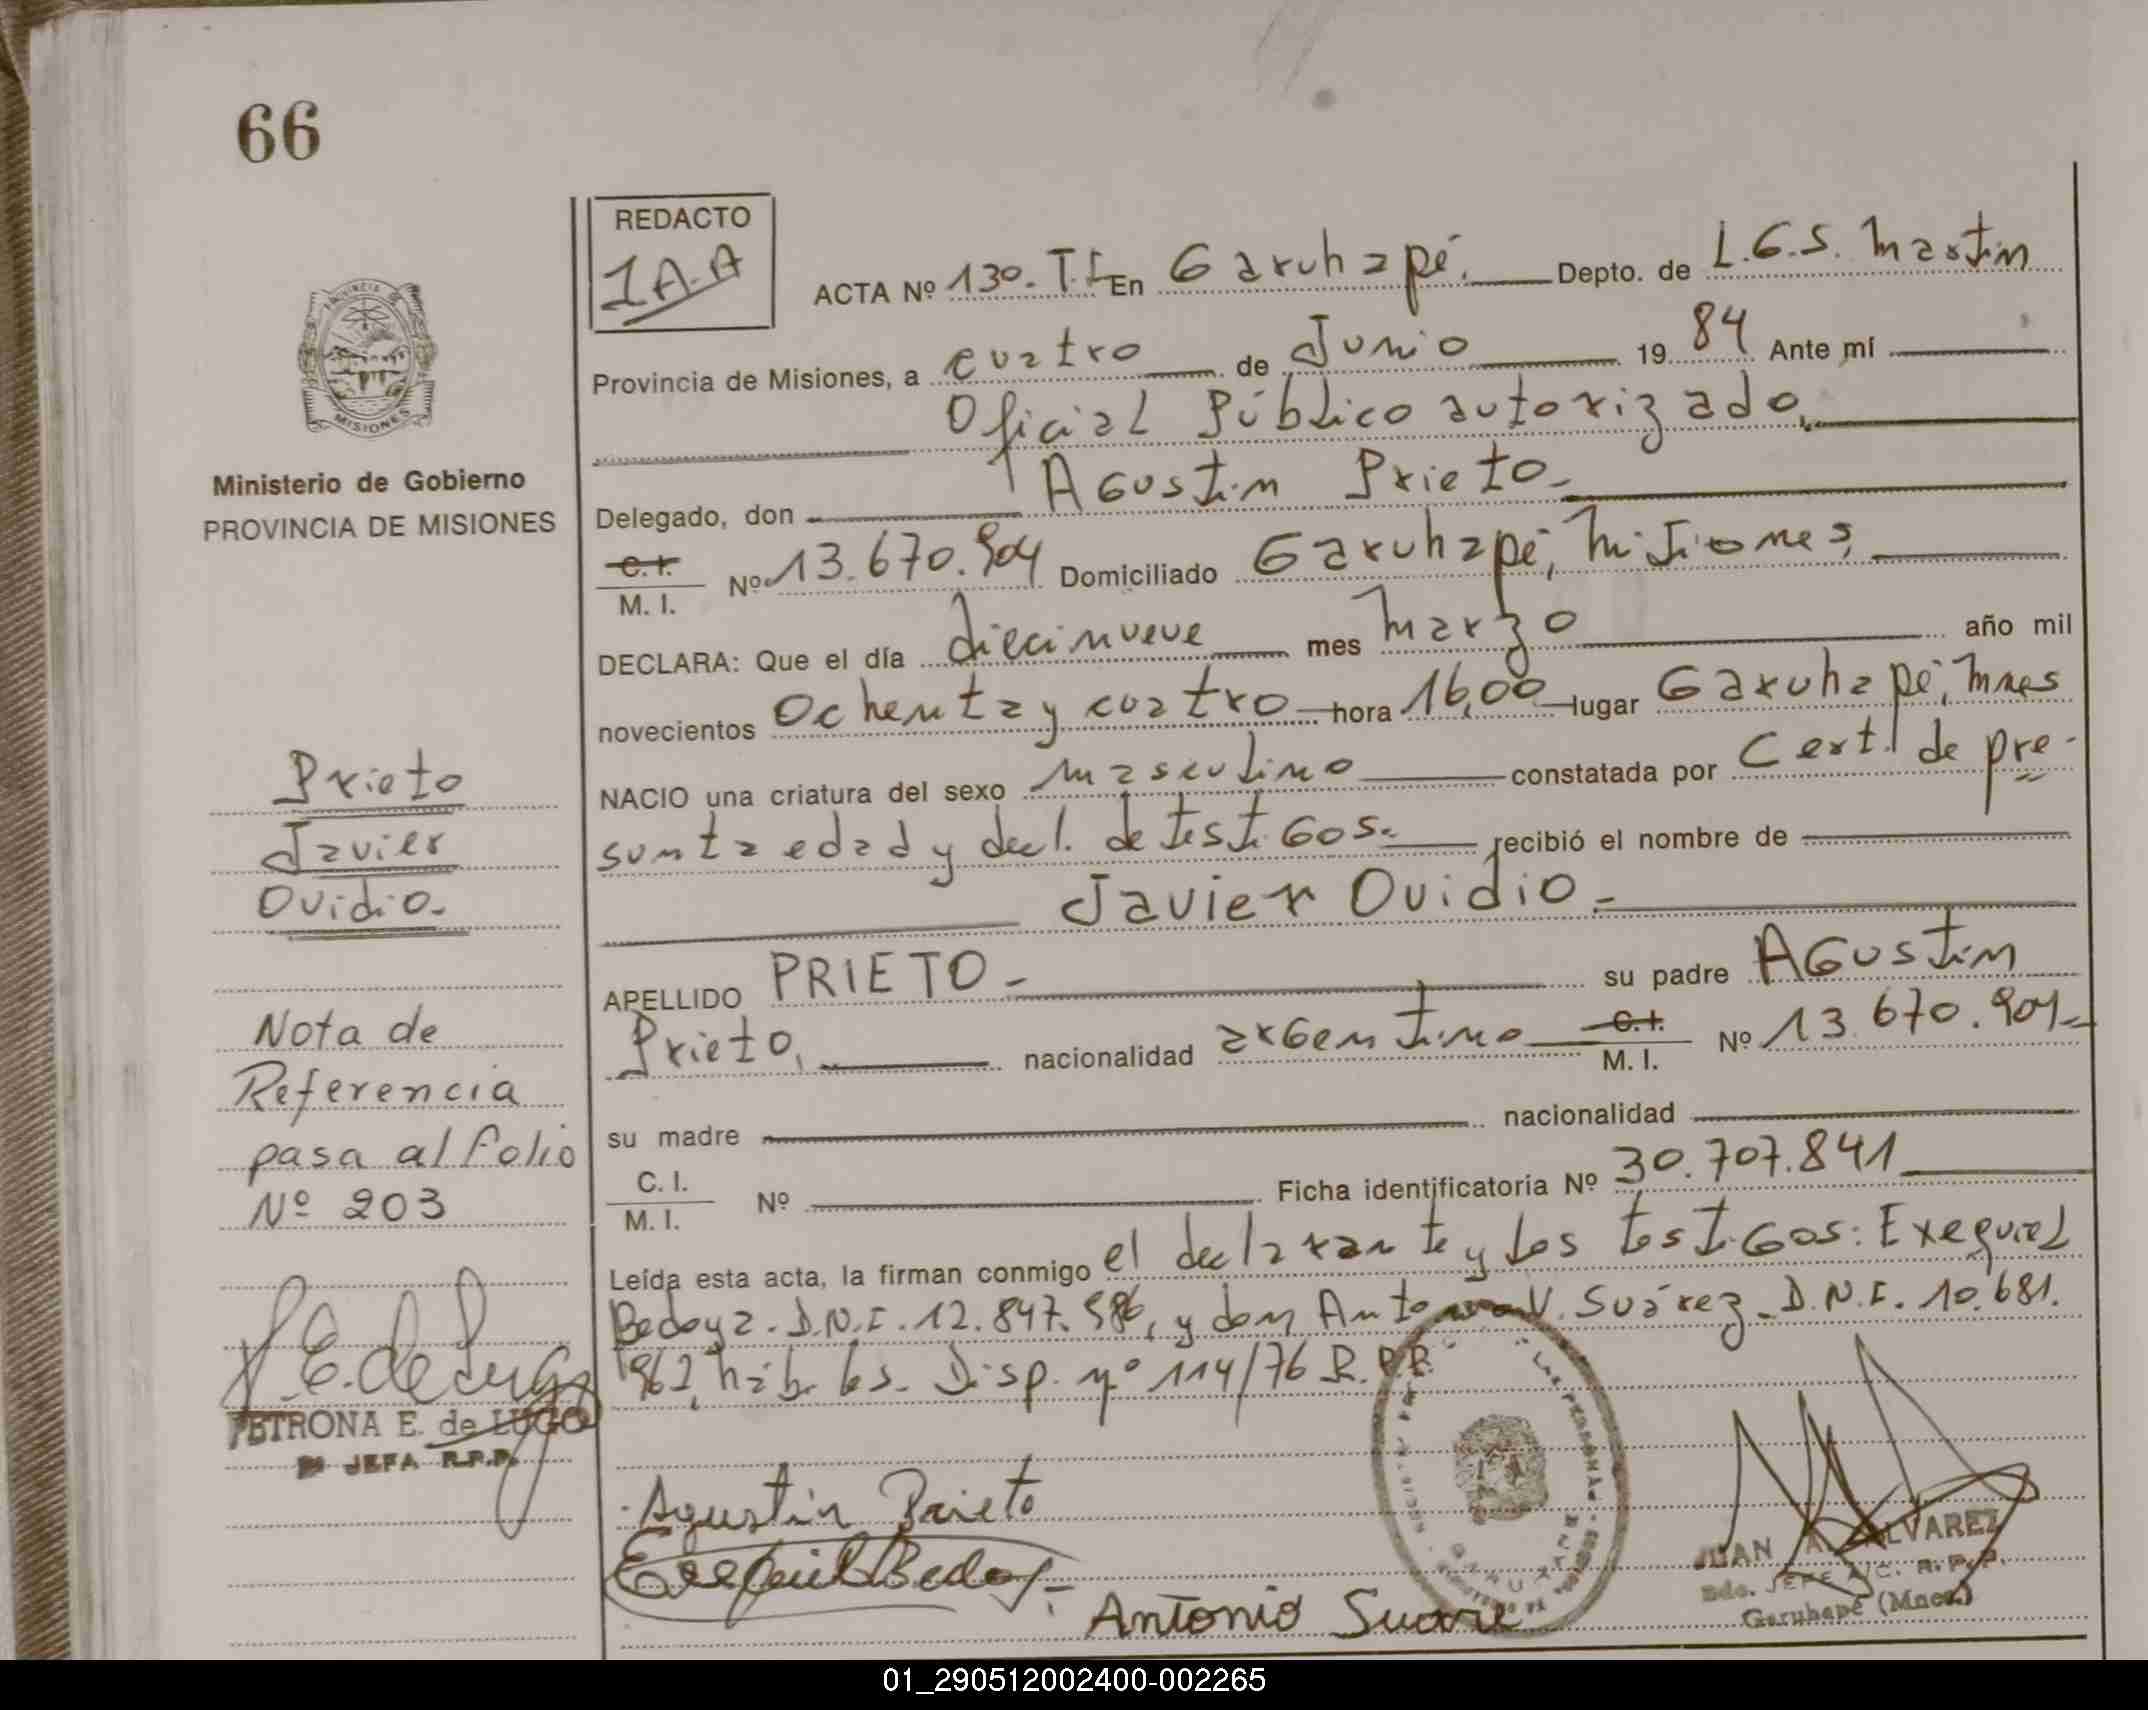 66
REDACTO
ACTA Nº 130. T.I En Garuhapé. Depto. de L.G.S. Martin
Provincia de Misiones, a cuatro de Junio 1984 Ante mí
Oficial Público autorizado.
Delegado, don Agustin Prieto-
C. I.
M. I. Nº 13.670.904 Domiciliado Garuhapé, Misiones,
DECLARA: Que el día diecinueve mes Marzo año mil
novecientos Ochenta y cuatro hora 16,00 lugar Garuhapé, Mnes
NACIO una criatura del sexo masculino constatada por Cert. de pre-
sunta edad y decl. de testigos. recibió el nombre de
Javier Ovidio.-
APELLIDO PRIETO- su padre Agustin
Prieto, nacionalidad argentino C. I.
M. I. Nº 13.670.904-
su madre nacionalidad
C. I.
M. I. Nº Ficha identificatoria Nº 30.707.841
Leída esta acta, la firman conmigo el declarante y los testigos: Exequiel
Bedoya. D.N.I. 12.847.586, y don Antonio V. Suárez. D.N.I. 10.681.
962, hábiles. Disp. nº 114/76 R.P.P.
Agustin Prieto
Exequiel Bedoy
Antonio Suare
JUAN ALVAREZ
JEFE R.P.P.
Garuhapé (Mnes.)
PROVINCIA DE
MISIONES
Ministerio de Gobierno
PROVINCIA DE MISIONES
Prieto
Javier
Ovidio-
Nota de
Referencia
pasa al folio
Nº 203
P.E. de Lugo
PETRONA E. de LUGO
JEFA R.P.P.
01_290512002400-002265